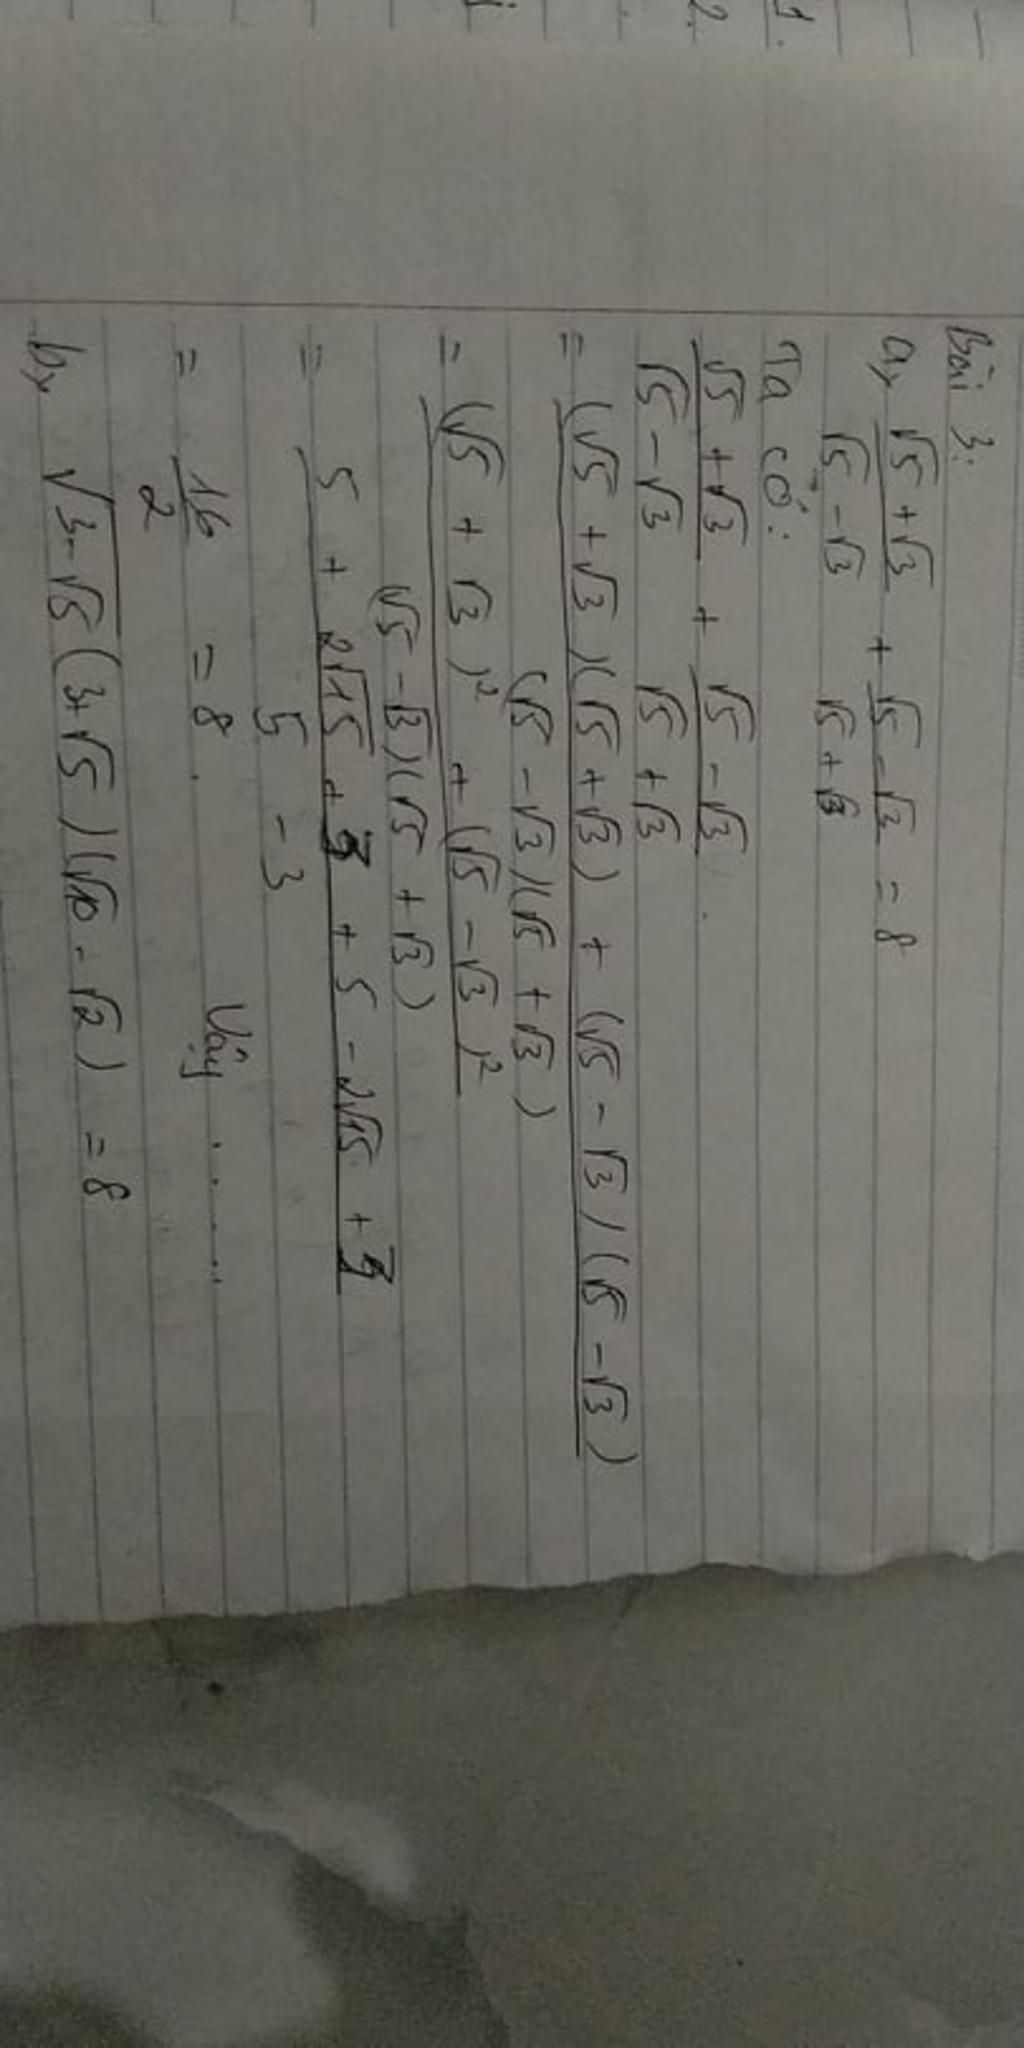 Bài 3:
a, (√5 + √3)/(√5 - √3) + (√5 - √3)/(√5 + √3) = 8
Ta có:
(√5 + √3)/(√5 - √3) + (√5 - √3)/(√5 + √3)
= ((√5 + √3)(√5 + √3) + (√5 - √3)(√5 - √3))/((√5 - √3)(√5 + √3))
= ((√5 + √3)² + (√5 - √3)²)/((√5 - √3)(√5 + √3))
= (5 + 2√15 + 3 + 5 - 2√15 + 3)/(5 - 3)
= 16/2 = 8. Vậy .......
b, √(3-√5) (3+√5)(√10 - √2) = 8
1.
2.